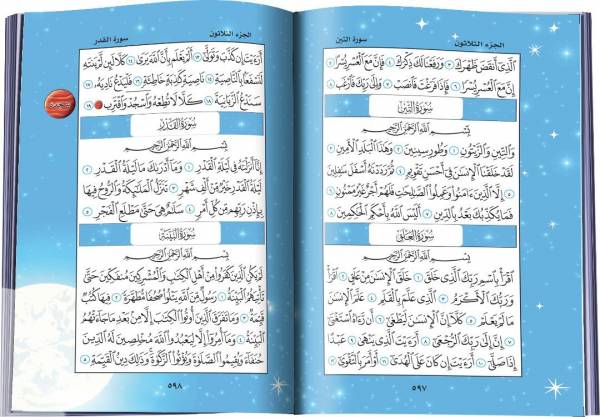 الجزء الثلاثون سورة التين
ٱلَّذِىٓ أَنقَضَ ظَهْرَكَ ٣ وَرَفَعْنَا لَكَ ذِكْرَكَ ٤ فَإِنَّ مَعَ ٱلْعُسْرِ يُسْرًا ٥
إِنَّ مَعَ ٱلْعُسْرِ يُسْرًا ٦ فَإِذَا فَرَغْتَ فَٱنصَبْ ٧ وَإِلَىٰ رَبِّكَ فَٱرْغَب ٨
سُورَةُ التِّينِ
بِسْمِ ٱللَّهِ ٱلرَّحْمَٰنِ ٱلرَّحِيمِ
وَٱلتِّينِ وَٱلزَّيْتُونِ ١ وَطُورِ سِينِينَ ٢ وَهَٰذَا ٱلْبَلَدِ ٱلْأَمِينِ ٣
لَقَدْ خَلَقْنَا ٱلْإِنسَٰنَ فِىٓ أَحْسَنِ تَقْوِيمٍ ٤ ثُمَّ رَدَدْنَٰهُ أَسْفَلَ سَٰفِلِينَ
٥ إِلَّا ٱلَّذِينَ ءَامَنُوا۟ وَعَمِلُوا۟ ٱلصَّٰلِحَٰتِ فَلَهُمْ أَجْرٌ غَيْرُ مَمْنُونٍ ٦
فَمَا يُكَذِّبُكَ بَعْدُ بِٱلدِّينِ ٧ أَلَيْسَ ٱللَّهُ بِأَحْكَمِ ٱلْحَٰكِمِينَ ٨
سُورَةُ العَلَقِ
بِسْمِ ٱللَّهِ ٱلرَّحْمَٰنِ ٱلرَّحِيمِ
ٱقْرَأْ بِٱسْمِ رَبِّكَ ٱلَّذِى خَلَقَ ١ خَلَقَ ٱلْإِنسَٰنَ مِنْ عَلَقٍ ٢ ٱقْرَأْ
وَرَبُّكَ ٱلْأَكْرَمُ ٣ ٱلَّذِى عَلَّمَ بِٱلْقَلَمِ ٤ عَلَّمَ ٱلْإِنسَٰنَ
مَا لَمْ يَعْلَمْ ٥ كَلَّآ إِنَّ ٱلْإِنسَٰنَ لَيَطْغَىٰٓ ٦ أَن رَّءَاهُ ٱسْتَغْنَىٰٓ
٧ إِنَّ إِلَىٰ رَبِّكَ ٱلرُّجْعَىٰٓ ٨ أَرَءَيْتَ ٱلَّذِى يَنْهَىٰ ٩ عَبْدًا
إِذَا صَلَّىٰٓ ١٠ أَرَءَيْتَ إِن كَانَ عَلَى ٱلْهُدَىٰٓ ١١ أَوْ أَمَرَ بِٱلتَّقْوَىٰٓ ١٢
٥٩٧
الجزء الثلاثون سورة القدر
أَرَءَيْتَ إِن كَذَّبَ وَتَوَلَّىٰٓ ١٣ أَلَمْ يَعْلَم بِأَنَّ ٱللَّهَ يَرَىٰ ١٤ كَلَّا لَئِن لَّمْ يَنتَهِ
لَنَسْفَعًۢا بِٱلنَّاصِيَةِ ١٥ نَاصِيَةٍ كَٰذِبَةٍ خَاطِئَةٍ ١٦ فَلْيَدْعُ نَادِيَهُۥ ١٧
سَنَدْعُ ٱلزَّبَانِيَةَ ١٨ كَلَّا لَا تُطِعْهُ وَٱسْجُدْ وَٱقْتَرِب ۩ ١٩
سُورَةُ القَدْرِ
بِسْمِ ٱللَّهِ ٱلرَّحْمَٰنِ ٱلرَّحِيمِ
إِنَّآ أَنزَلْنَٰهُ فِى لَيْلَةِ ٱلْقَدْرِ ١ وَمَآ أَدْرَىٰكَ مَا لَيْلَةُ ٱلْقَدْرِ ٢
لَيْلَةُ ٱلْقَدْرِ خَيْرٌ مِّنْ أَلْفِ شَهْرٍ ٣ تَنَزَّلُ ٱلْمَلَٰٓئِكَةُ وَٱلرُّوحُ فِيهَا
بِإِذْنِ رَبِّهِم مِّن كُلِّ أَمْرٍ ٤ سَلَٰمٌ هِىَ حَتَّىٰ مَطْلَعِ ٱلْفَجْرِ ٥
سُورَةُ البَيِّنَةِ
بِسْمِ ٱللَّهِ ٱلرَّحْمَٰنِ ٱلرَّحِيمِ
لَمْ يَكُنِ ٱلَّذِينَ كَفَرُوا۟ مِنْ أَهْلِ ٱلْكِتَٰبِ وَٱلْمُشْرِكِينَ مُنفَكِّينَ حَتَّىٰ
تَأْتِيَهُمُ ٱلْبَيِّنَةُ ١ رَسُولٌ مِّنَ ٱللَّهِ يَتْلُوا۟ صُحُفًا مُّطَهَّرَةً ٢ فِيهَا كُتُبٌ
قَيِّمَةٌ ٣ وَمَا تَفَرَّقَ ٱلَّذِينَ أُوتُوا۟ ٱلْكِتَٰبَ إِلَّا مِنۢ بَعْدِ مَا جَآءَتْهُمُ
ٱلْبَيِّنَةُ ٤ وَمَآ أُمِرُوٓا۟ إِلَّا لِيَعْبُدُوا۟ ٱللَّهَ مُخْلِصِينَ لَهُ ٱلدِّينَ
حُنَفَآءَ وَيُقِيمُوا۟ ٱلصَّلَوٰةَ وَيُؤْتُوا۟ ٱلزَّكَوٰةَ وَذَٰلِكَ دِينُ ٱلْقَيِّمَةِ ٥
٥٩٨